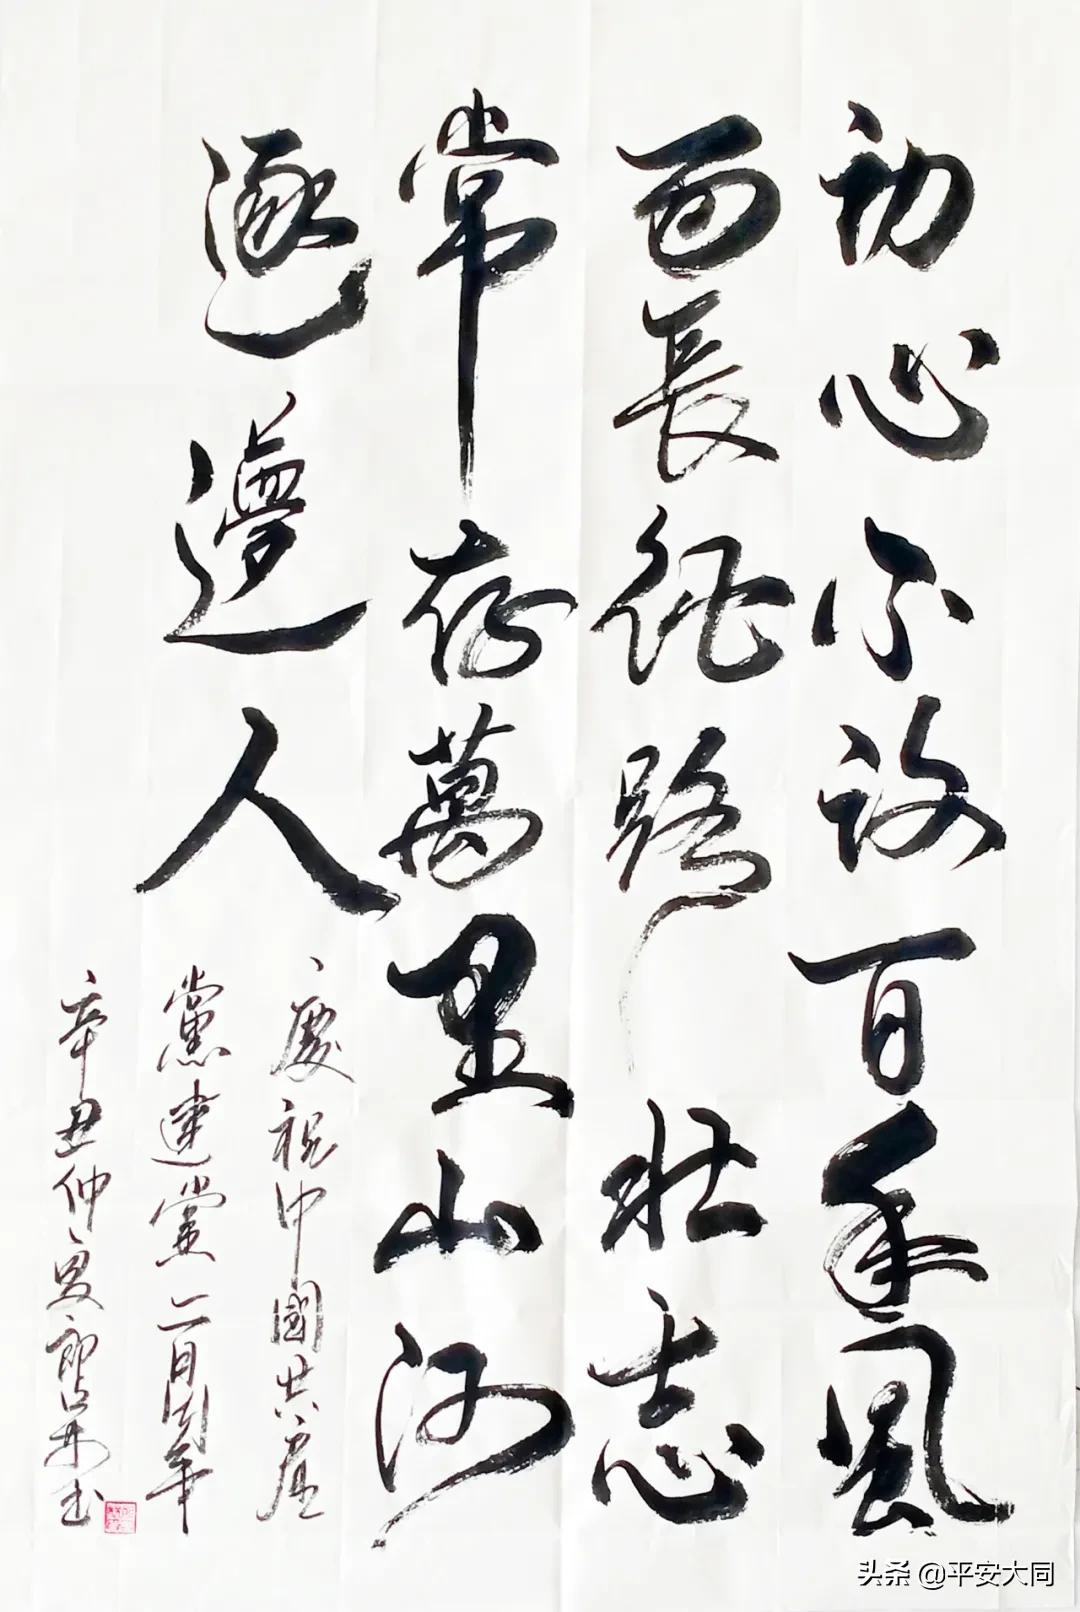 初心不改百年風
雨長征路壯志
常存萬里山河
逐夢人
慶祝中國共產
黨建黨一百周年
辛丑仲夏
头条 @平安大同